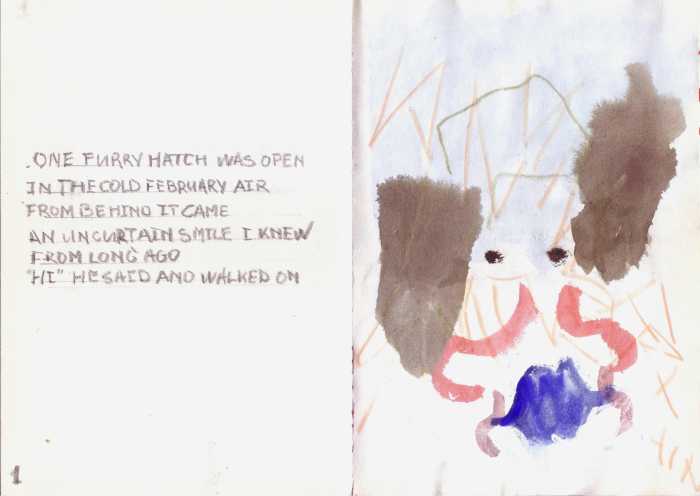 . ONE FURRY HATCH WAS OPEN
IN THE COLD FEBRUARY AIR
FROM BEHIND IT CAME
AN UNCURTAIN SMILE I KNEW
FROM LONG AGO
"HI" HE SAID AND WALKED ON
1